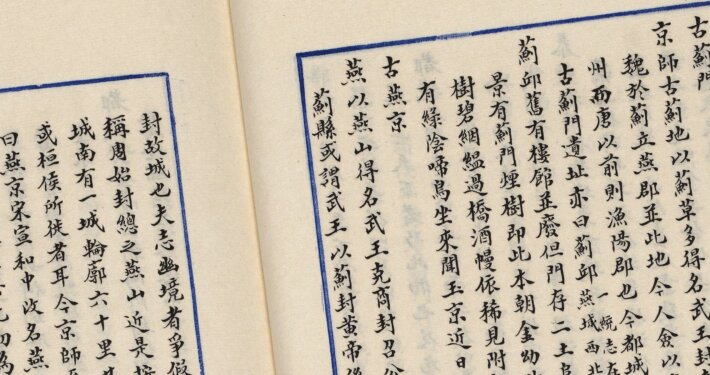 古薊門
京師古薊地以薊草多得名武王封
魏於薊立燕郡並此地今人僉以
州而唐以前則漁陽郡也今都城
古薊門遺址亦曰薊邱一統志在燕城西北
薊邱舊有樓館並廢但門存二土
景有薊門煙樹即此本朝金幼
樹碧絪縕過橋酒幔依稀見附
有綠陰啼鳥坐來聞玉京近日
古燕京
燕以燕山得名武王克商封召
薊縣或謂武王以薊封黃帝
封故城也夫志幽境者爭假
稱周始封總之燕山近是
城南有一城輪廓六十里
或桓侯所徙者耳今京師
曰燕京宋宣和中改名燕
初為